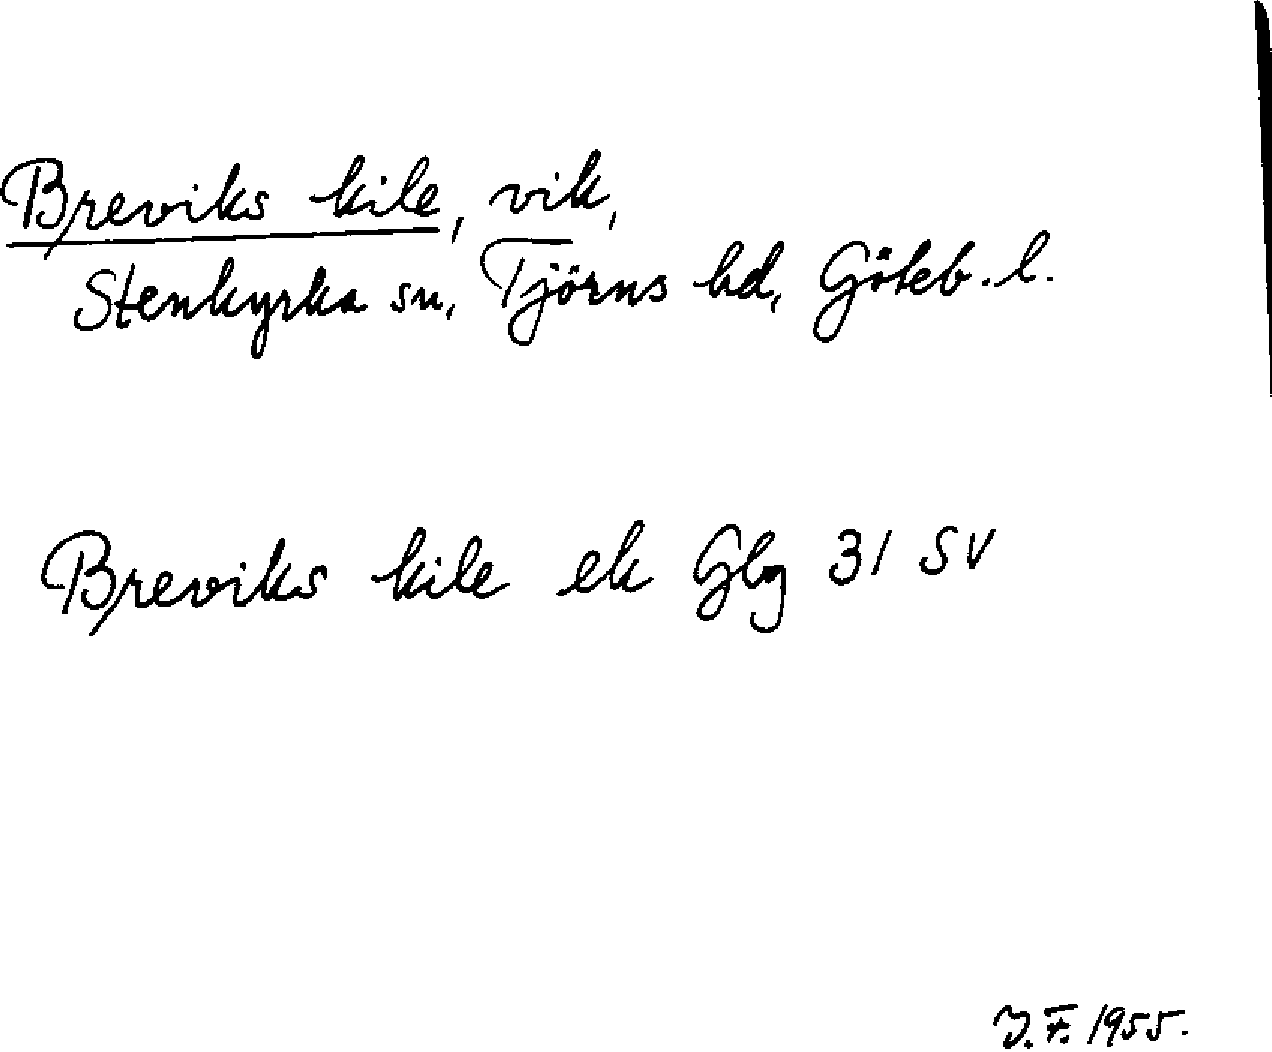 Breviks kile, vik,
Stenkyrka sn, Tjörns hd, Göteb. l.
Breviks kile ek Gbg 31 SV
J. F. 1955.